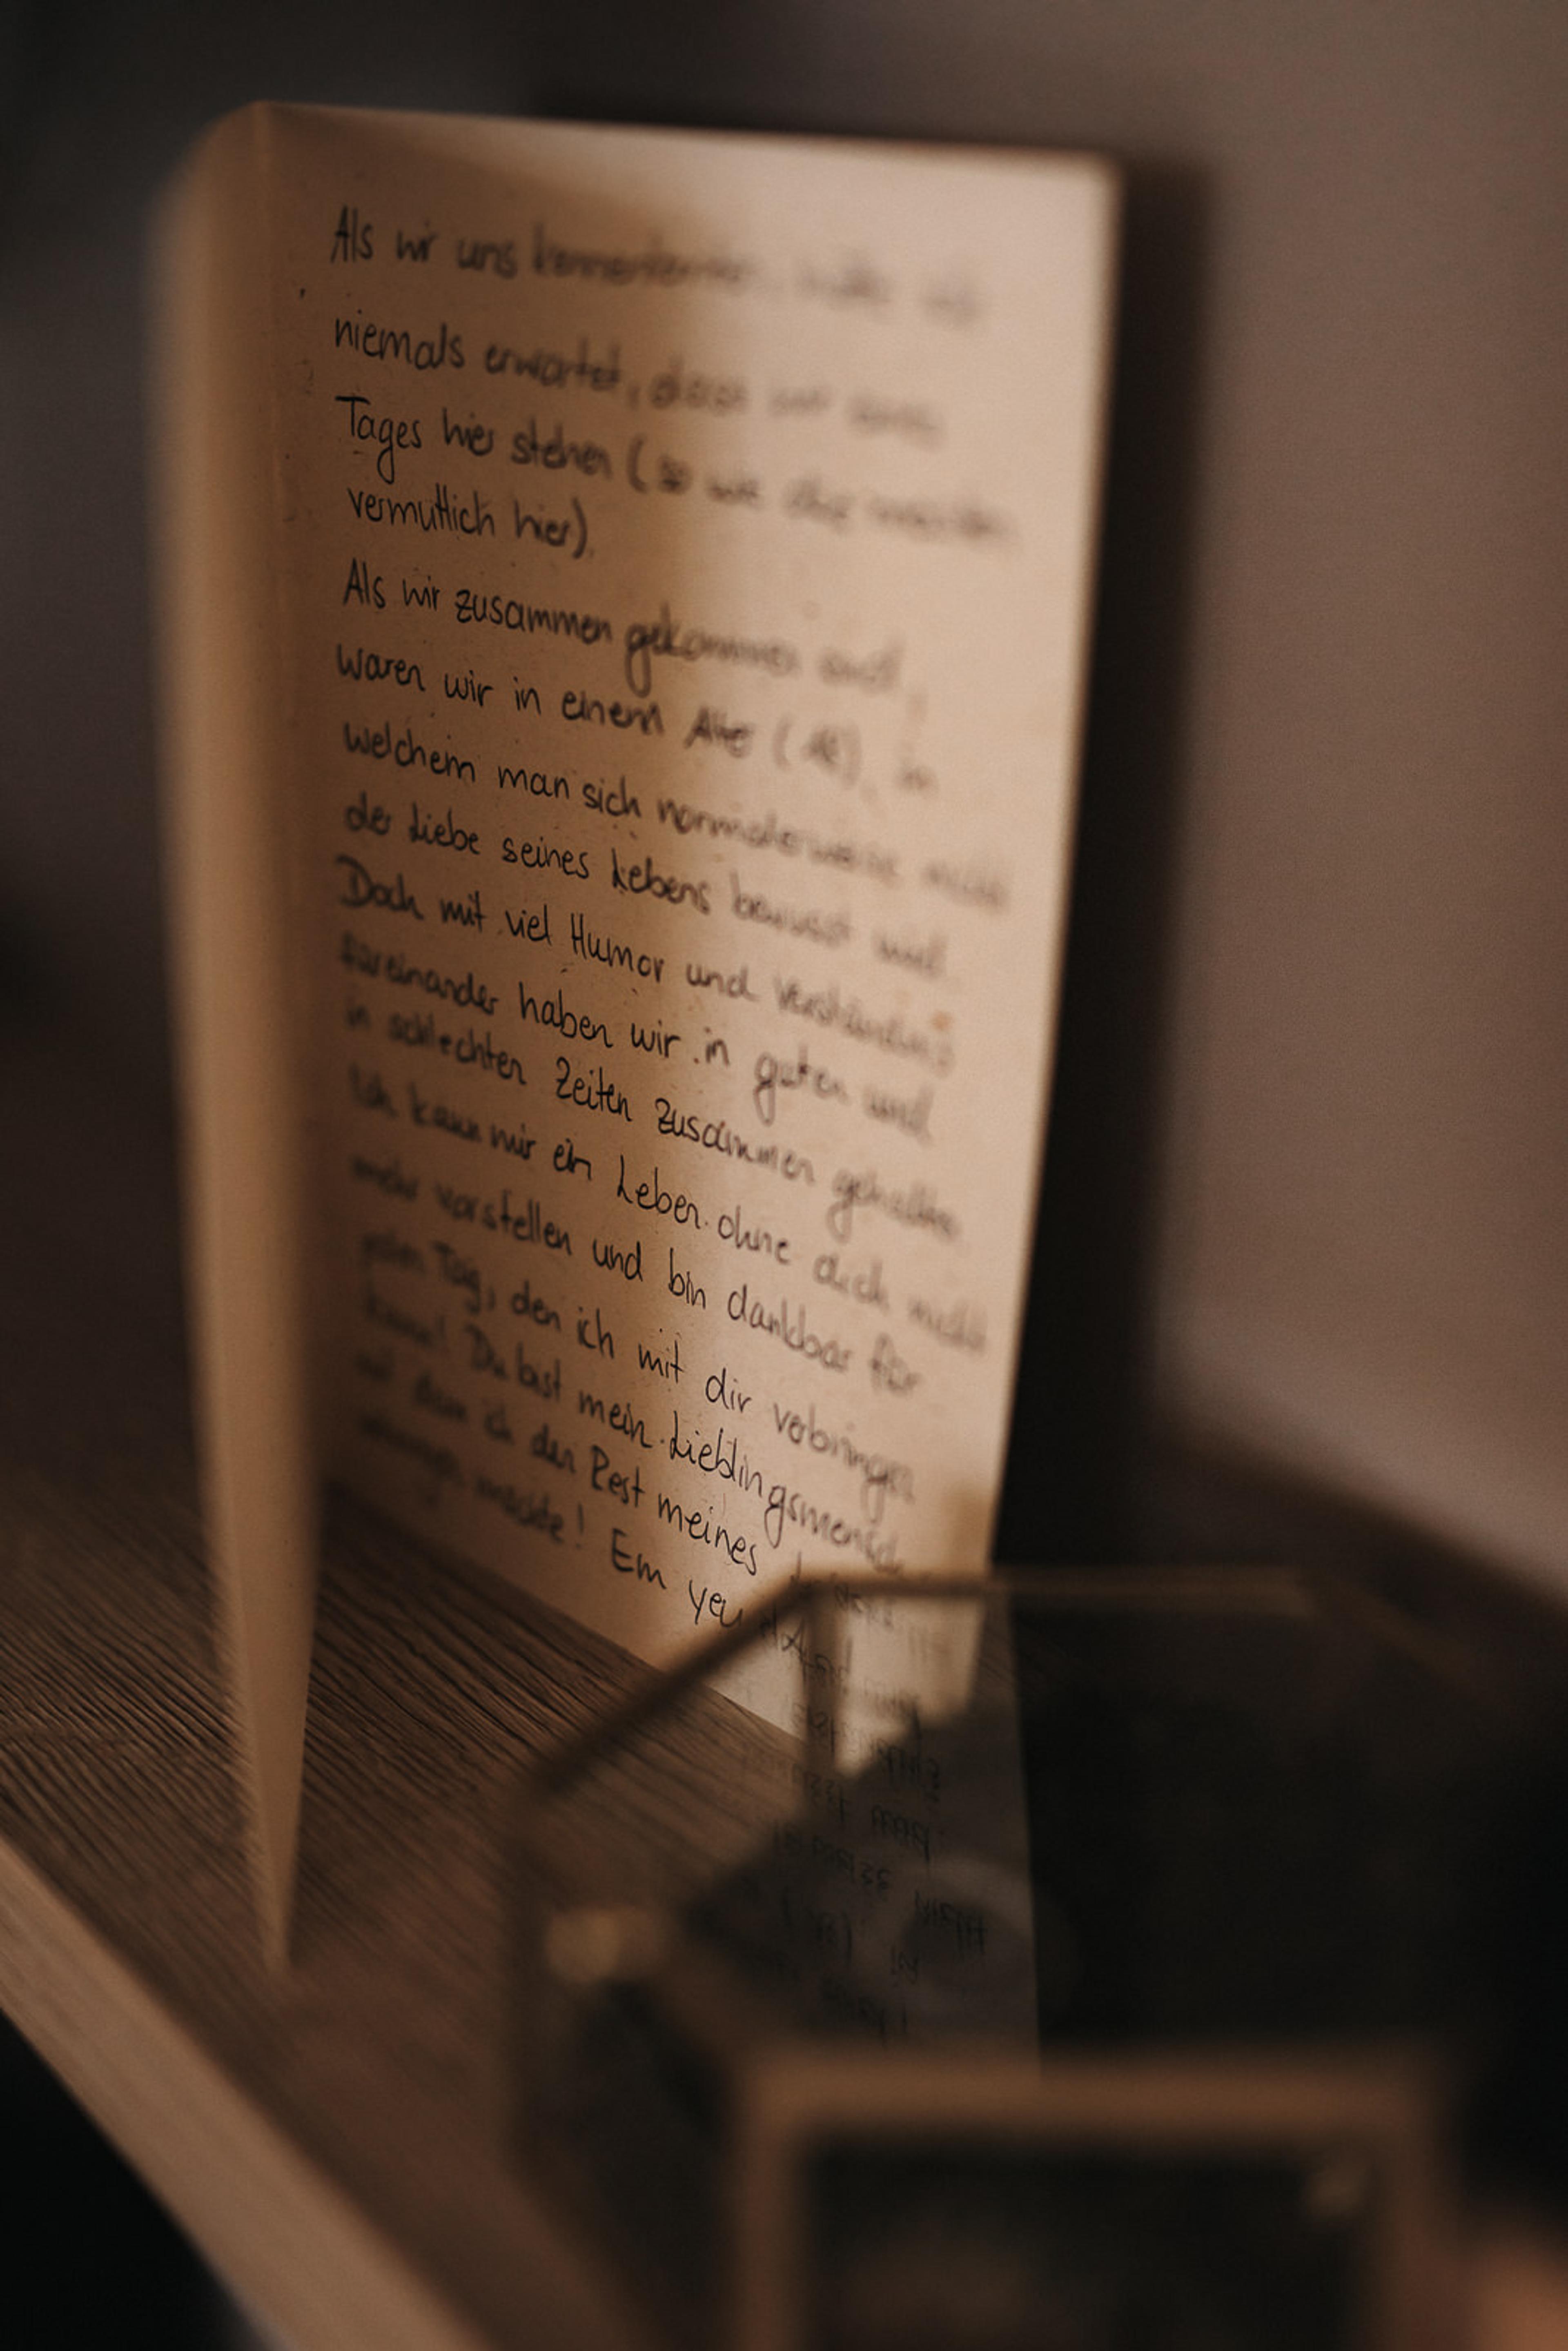 Als wir uns kennenlernten, hätte ich
niemals erwartet, dass wir eines
Tages hier stehen (so wie
vermutlich hier).
Als wir zusammen gekommen sind,
waren wir in einem Alter (18), in
welchem man sich normalerweise nicht
der Liebe seines Lebens bewusst wird.
Doch mit viel Humor und Verständnis
füreinander haben wir in guten und
in schlechten Zeiten zusammen gehalten.
Ich kann mir ein Leben ohne dich nicht
mehr vorstellen und bin dankbar für
jeden Tag, den ich mit dir verbringen
kann! Du bist mein Lieblingsmensch,
mit dem ich den Rest meines
möchte! Em yeu